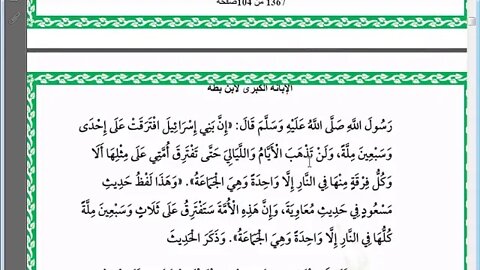 / 136 من 104صفحة
الإبانة الكبرى لابن بطة
رَسُولَ اللَّهِ صَلَّى اللَّهُ عَلَيْهِ وَسَلَّمَ قَالَ: «إِنَّ بَنِي إِسْرَائِيلَ افْتَرَقَتْ عَلَى إِحْدَى
وَسَبْعِينَ مِلَّةً، وَلَنْ تَذْهَبَ الْأَيَّامُ وَاللَّيَالِيَ حَتَّى تَفْتَرِقَ أُمَّتِي عَلَى مِثْلِهَا أَلَا
وَكُلُّ فِرْقَةٍ مِنْهَا فِي النَّارِ إِلَّا وَاحِدَةً وَهِيَ الْجَمَاعَةُ». «وَهَذَا لَفْظُ حَدِيثِ
مَسْعُودٍ فِي حَدِيثِ مُعَاوِيَةَ، وَإِنَّ هَذِهِ الْأُمَّةَ سَتَفْتَرِقُ عَلَى ثَلَاثٍ وَسَبْعِينَ مِلَّةً
كُلُّهَا فِي النَّارِ إِلَّا وَاحِدَةً وَهِيَ الْجَمَاعَةُ». وَذَكَرَ الْحَدِيثَ